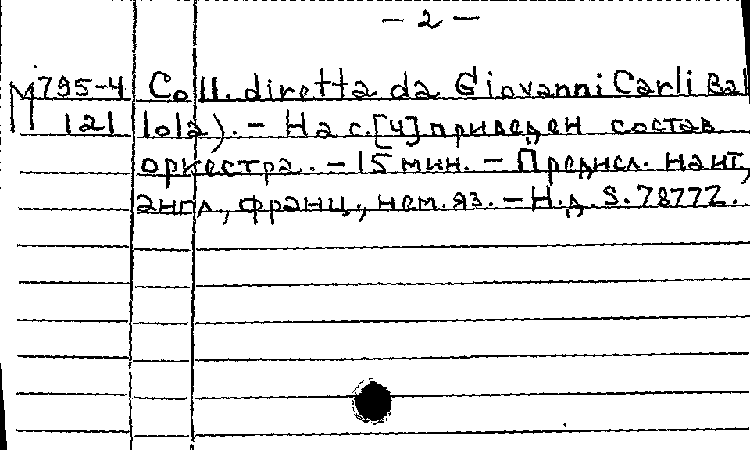 – 2 –
М 795-4 Coll. diretta da Giovanni Carli Bal
121 lola). – На с.[4] приведен состав
оркестра. – 15 мин. – Предисл. на ит,
англ., франц., нем. яз. – Н.д. S. 7877Z.